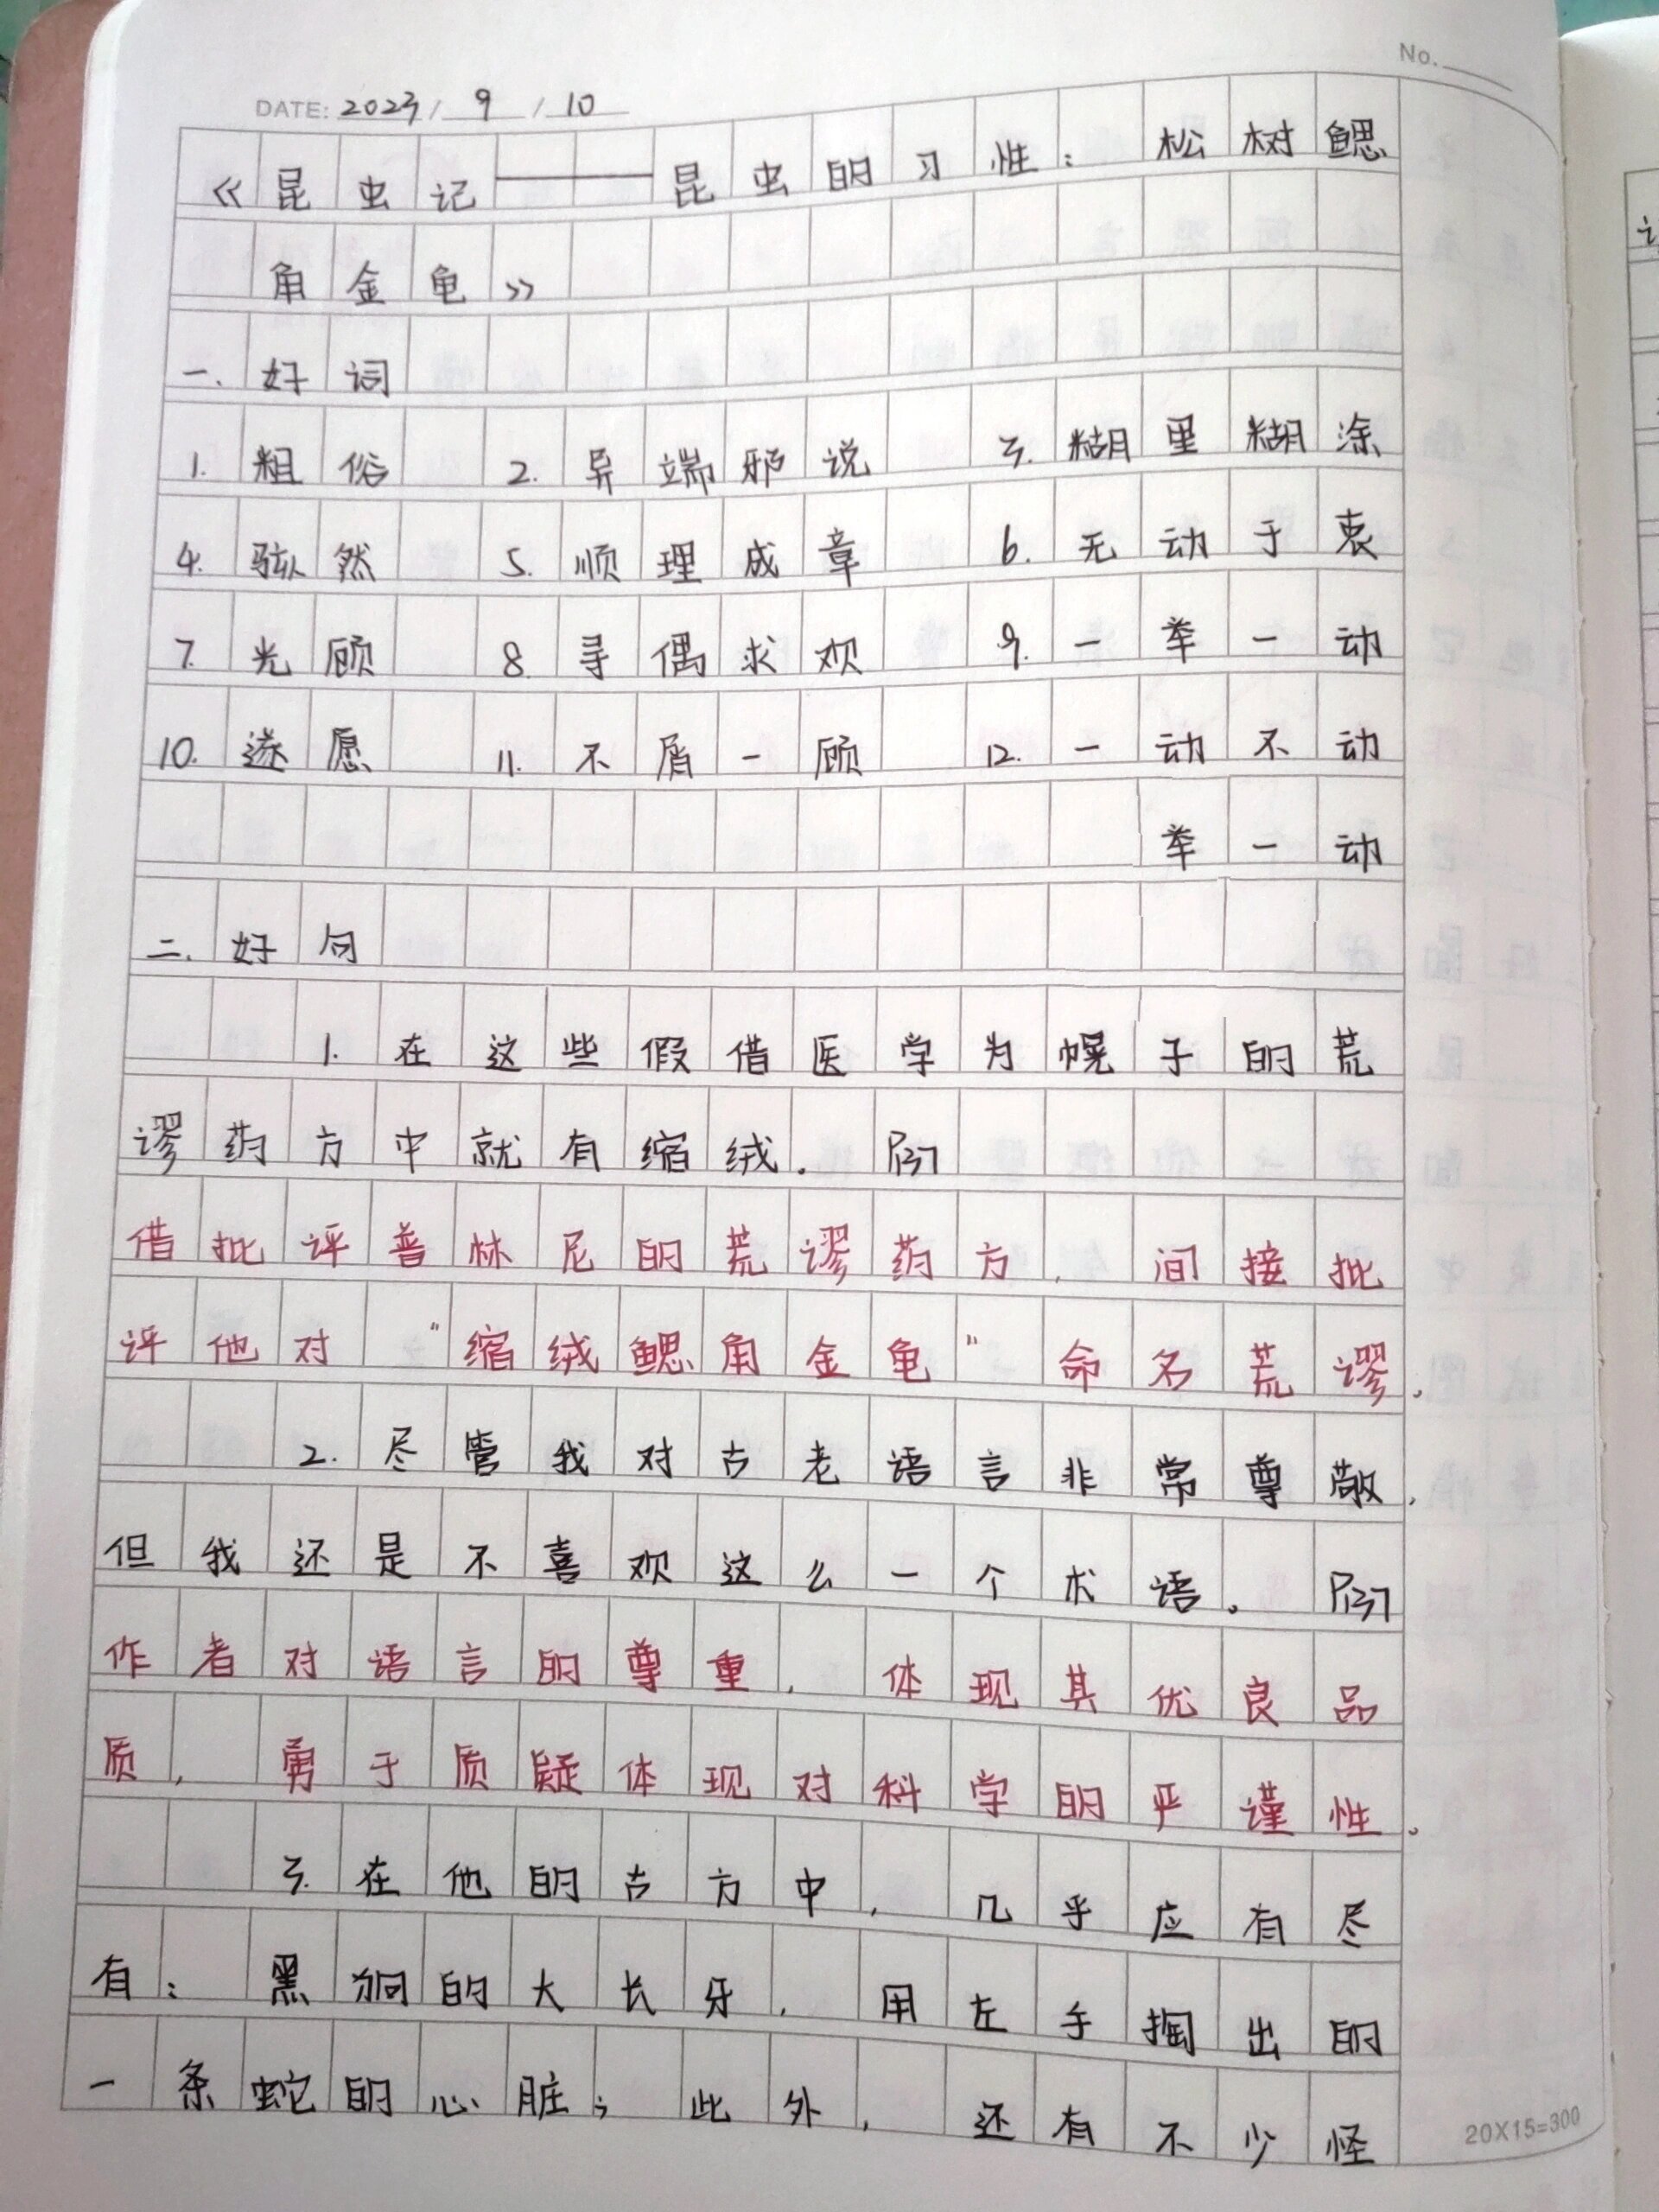 No.
DATE: 2023 / 9 / 10
《昆虫记——昆虫的习性：松树鳃
角金龟》
一、好词
1. 粗俗 2. 异端邪说 3. 糊里糊涂
4. 骇然 5. 顺理成章 6. 无动于衷
7. 光顾 8. 寻偶求欢 9. 一举一动
10. 遂愿 11. 不屑一顾 12. 一动不动
举一动
二、好句
1. 在这些假借医学为幌子的荒
谬药方中就有缩绒。P137
借批评普林尼的荒谬药方，间接批
评他对“缩绒鳃角金龟”命名荒谬。
2. 尽管我对古老语言非常尊敬，
但我还是不喜欢这么一个术语。P137
作者对语言的尊重，体现其优良品
质，勇于质疑体现对科学的严谨性。
3. 在他的古方中，几乎应有尽
有：黑狗的大长牙，用左手掏出的
一条蛇的心脏；此外，还有不少怪
20X15=300